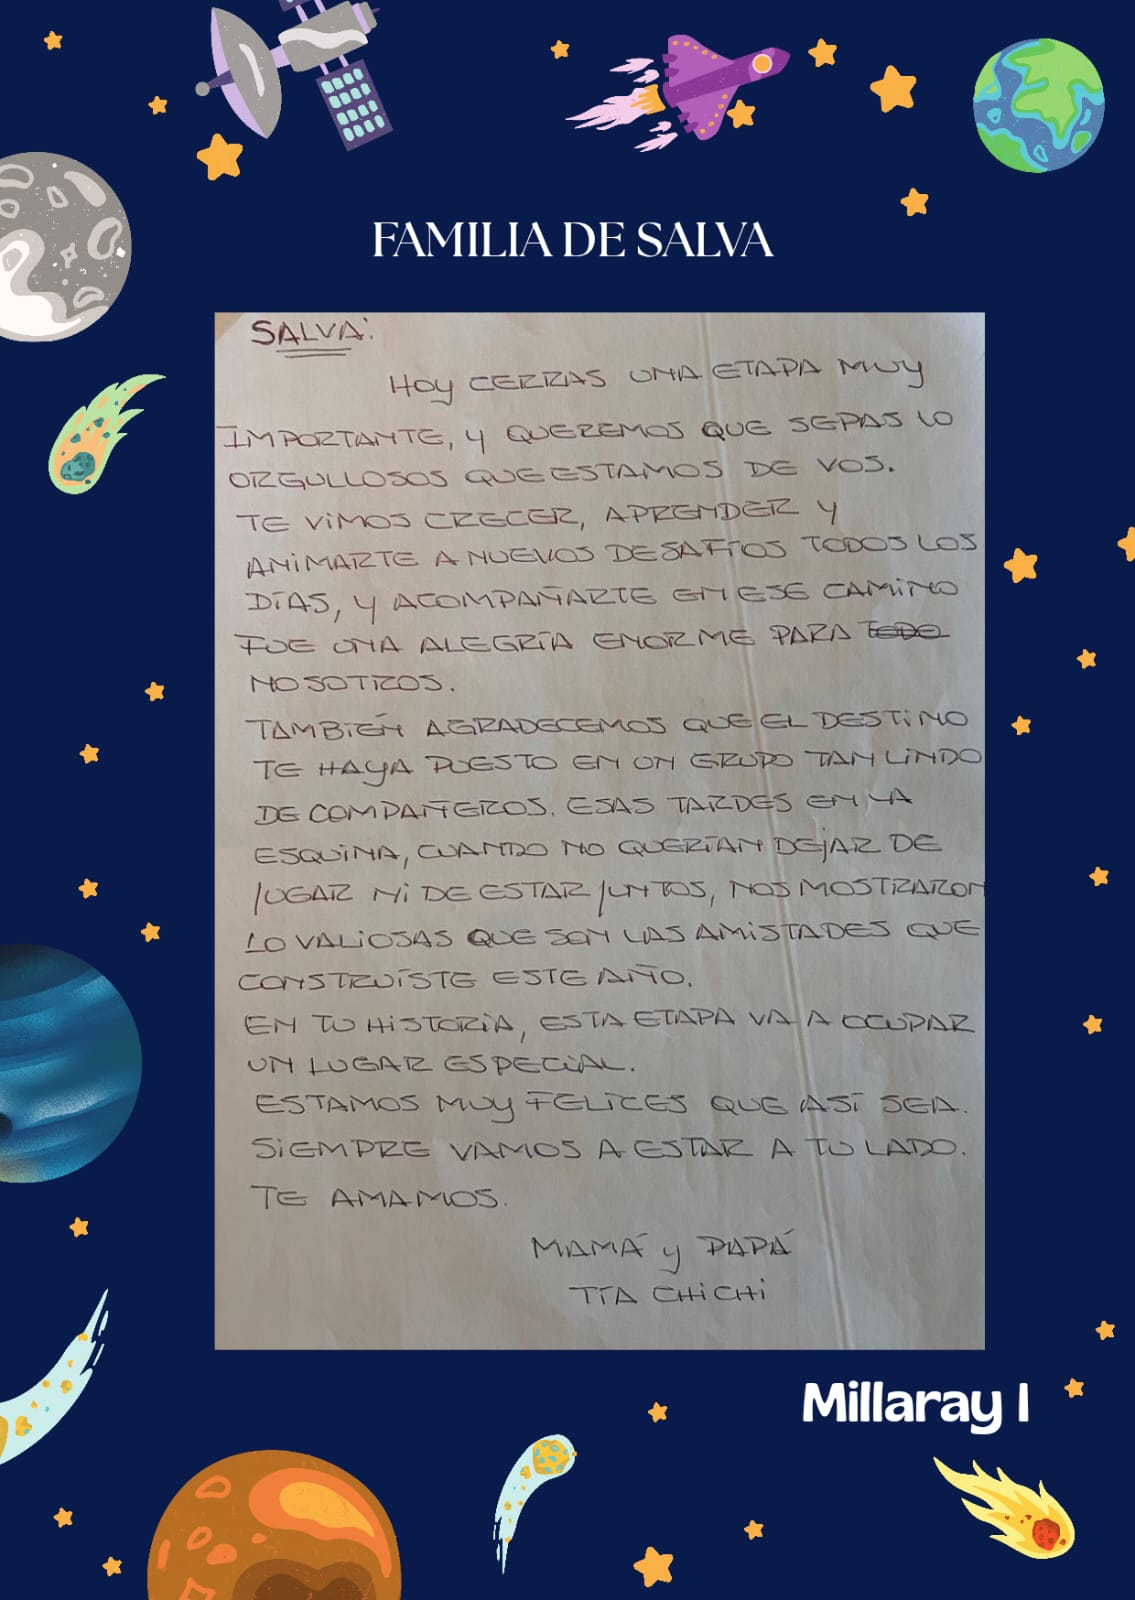 FAMILIA DE SALVA
SALVA:
HOY CERRAS UNA ETAPA MUY
IMPORTANTE, Y QUEREMOS QUE SEPAS LO
ORGULLOSOS QUE ESTAMOS DE VOS.
TE VIMOS CRECER, APRENDER Y
ANIMARTE A NUEVOS DESAFÍOS TODOS LOS
DÍAS, Y ACOMPAÑARTE EN ESE CAMINO
FUE UNA ALEGRÍA ENORME PARA TODO
NOSOTROS.
TAMBIÉN AGRADECEMOS QUE EL DESTINO
TE HAYA PUESTO EN UN GRUPO TAN LINDO
DE COMPAÑEROS. ESAS TARDES EN LA
ESQUINA, CUANDO NO QUERÍAN DEJAR DE
JUGAR NI DE ESTAR JUNTOS, NOS MOSTRARON
LO VALIOSAS QUE SON LAS AMISTADES QUE
CONSTRUÍSTE ESTE AÑO.
EN TU HISTORIA, ESTA ETAPA VA A OCUPAR
UN LUGAR ESPECIAL.
ESTAMOS MUY FELICES QUE ASÍ SEA.
SIEMPRE VAMOS A ESTAR A TU LADO.
TE AMAMOS.
MAMÁ Y PAPÁ
TÍA CHICHI
Millaray I